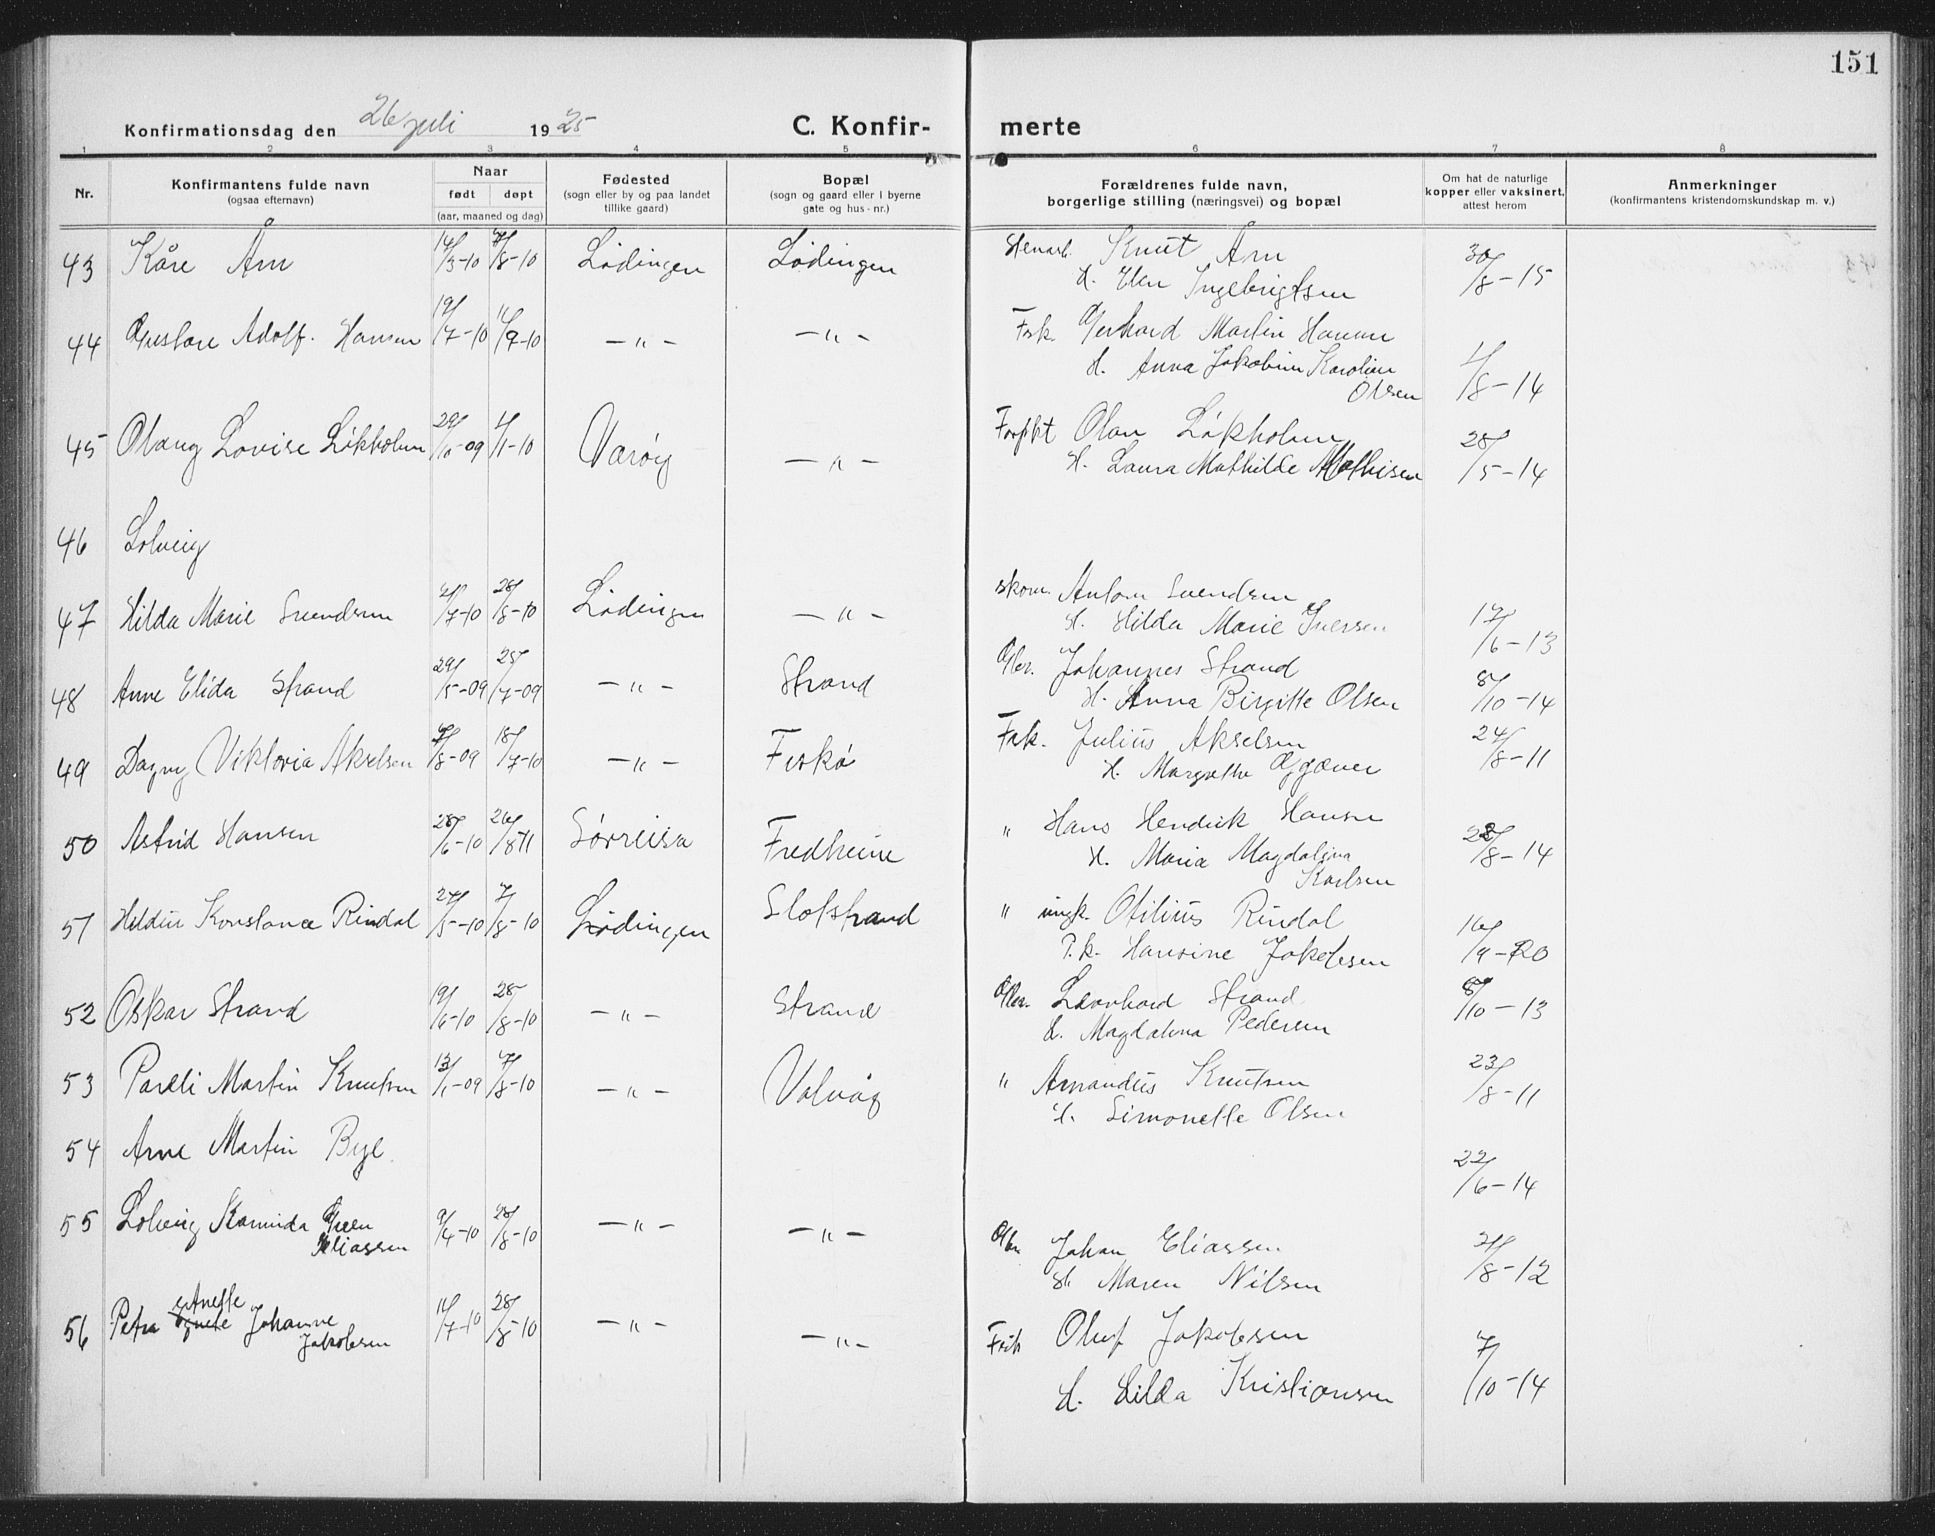 151
Konfirmationsdag den 26 juli 1925 C. Konfir- merte
1 2 3 4 5 6 7 8
Nr. Konfirmantens fulde navn (ogsaa efternavn) Naar født døpt (aar, maaned og dag) Fødested (sogn eller by og paa landet tillike gaard) Bopæl (sogn og gaard eller i byerne gate og hus-nr.) Forældrenes fulde navn, borgerlige stilling (næringsvei) og bopæl Om hat de naturlige kopper eller vaksinert, attest herom Anmerkninger (konfirmantens kristendomskundskap m. v.)
43 Kåre Åm 14/3-10 7/8-10 Lødingen Lødingen Knut Åm 30/8-15
H. Elen Ingebrigtsen
44 Gustav Adolf Hansen 19/7-10 11/9-10 — " — — " — Fisk. Gerhard Martin Hansen
H. Anna Jakobine Karoline 1/8-14
Olsen
45 Olaug Lovise Løkholm 29/10-09 1/1-10 Værøy — " — Olan Løkholm 28/5-14
H. Laura Mathilde Mathisen
46 Solveig
47 Hilda Marie Svendsen 21/7-10 28/8-10 Lødingen — " — skom. Anton Svendsen
H. Hilda Marie Iversen 17/6-13
48 Anne Elida Strand 29/5-09 25/7-09 — " — Strand Gbr. Johannes Strand
H. Anna Birgitte Olsen 8/10-14
49 Dagny Viktoria Akselsen 7/8-09 18/7-10 — " — Fiskø Fisk. Julius Akselsen 24/8-11
H. Margrethe
50 Astrid Hansen 28/6-10 26/8 11 Sørreisa Fredheim " Hans Hendrik Hansen
H. Maria Magdalina 28/8-14
Karlsen
51 Hildur Konstance Rindal 27/5-10 7/8-10 Lødingen Slotstrand " ungk. Otilius Rindal
P.k. Hansine Jakobsen 16/9-20
52 Oskar Strand 19/6-10 28/8-10 — " — Strand Gbr. Leonhard Strand 8/10-13
H. Magdalena Pedersen
53 Pareli Martin Knutsen 13/1-09 7/8-10 — " — Valvåg " Amandus Knutsen 23/8-11
H. Simonette Olsen
54 Arne Martin Bye. 22/6-14
55 Solveig Kaminda Green 9/4-10 28/8-10 — " — — " — Gbr Johan Eliassen 21/8-12
Eliassen H. Maren Nilsen
Anette
56 Petra Johanne 11/7-10 28/8-10 — " — — " — Fisk Oluf Jakobsen 7/10-14
Jakobsen H. Hilda Kristiansen